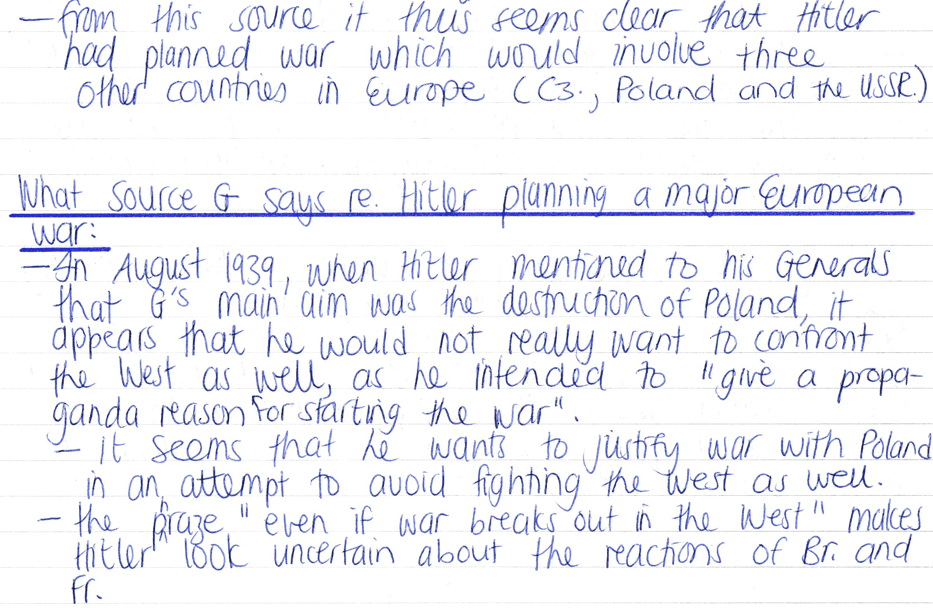 – from this source it thus seems clear that Hitler
had planned war which would involve three
other countries in Europe (C3., Poland and the USSR.)
What source G says re. Hitler planning a major European
war:
– In August 1939, when Hitler mentioned to his Generals
that G's main aim was the destruction of Poland, it
appears that he would not really want to confront
the West as well, as he intended to "give a propa-
ganda reason for starting the war".
– it seems that he wants to justify war with Poland
in an attempt to avoid fighting the West as well.
– the phraze "even if war breaks out in the West" makes
Hitler look uncertain about the reactions of Br. and
Fr.